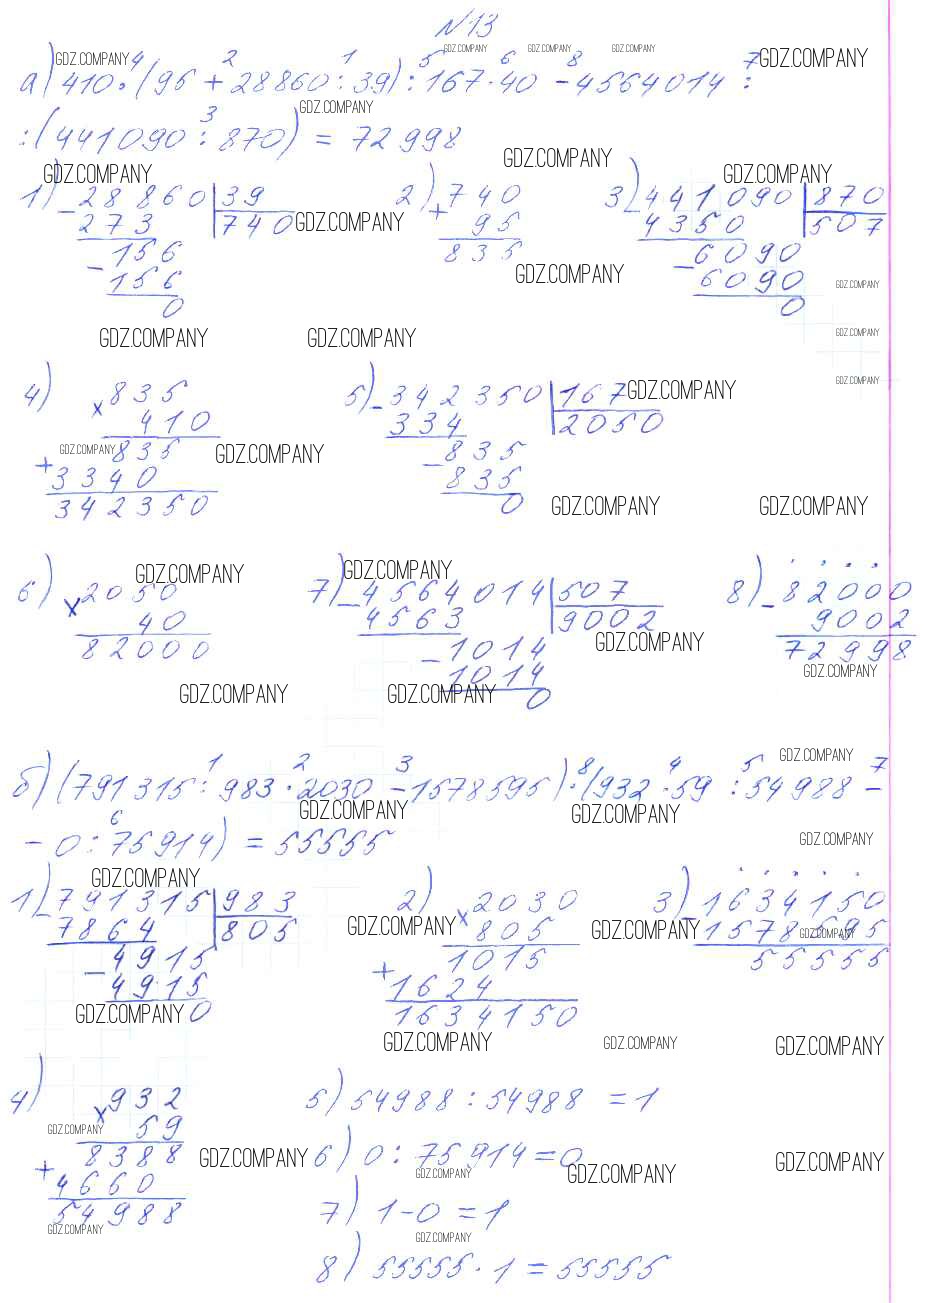 №13
а) 410·(95 + 28860:39):167·40 - 4564014 :
:(441090:870) = 72998
1) - 28860 | 39
273 | 740
- 156
156
0
2) + 740
95
835
3) - 441090 | 870
4350 | 507
- 6090
6090
0
4) × 835
410
+ 835
3340
342350
5) - 342350 | 167
334 | 2050
- 835
835
0
6) × 2050
40
82000
7) - 4564014 | 507
4563 | 9002
- 1014
1014
0
8) - 82000
9002
72998
б) (791315:983·2030 - 1578595)·(932·59:54988 -
- 0:75914) = 55555
1) - 791315 | 983
7864 | 805
- 4915
4915
0
2) × 2030
805
+ 1015
1624
1634150
3) - 1634150
1578595
55555
4) × 932
59
+ 8388
4660
54988
5) 54988 : 54988 = 1
6) 0 : 75914 = 0
7) 1 - 0 = 1
8) 55555 · 1 = 55555
GDZ.COMPANY